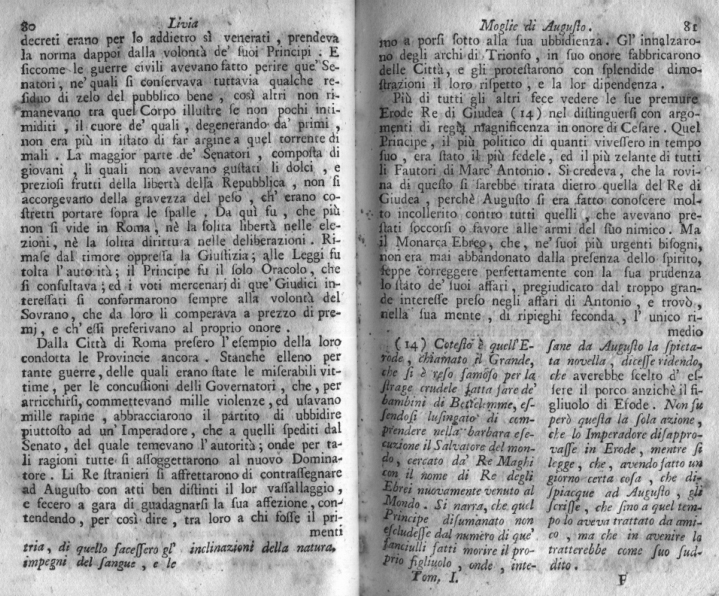 80 Livia
decreti erano per lo addietro sì venerati , prendeva
la norma dappoi dalla volontà de' ſuoi Principi . E
ſiccome le guerre civili avevano fatto perire que' Se-
natori, ne' quali ſi conſervava tuttavia qualche re-
ſiduo di zelo del pubblico bene , così altri non ri-
manevano tra quel Corpo illuſtre ſe non pochi inti-
miditi , il cuore de' quali , degenerando da' primi ,
non era più in iſtato di far argine a quel torrente di
mali . La maggior parte de' Senatori , compoſta di
giovani , li quali non avevano guſtati li dolci , e
prezioſi frutti della libertà della Repubblica , non ſi
accorgevano della gravezza del peſo , ch' erano co-
ſtretti portare ſopra le ſpalle . Da quì fu , che più
non ſi vide in Roma , nè la ſolita libertà nelle ele-
zioni, nè la ſolita dirittura nelle deliberazioni . Ri-
maſe dal timore oppreſſa la Giuſtizia ; alle Leggi fu
tolta l'autorità ; il Principe fu il ſolo Oracolo , che
ſi conſultava ; ed i voti mercenarj di que' Giudici in-
tereſſati ſi conformarono ſempre alla volontà del
Sovrano, che da loro li comperava a prezzo di pre-
mj, e ch' eſſi preferivano al proprio onore .
Dalla Città di Roma preſero l'eſempio della loro
condotta le Provincie ancora . Stanche elleno per
tante guerre, delle quali erano ſtate le miſerabili vit-
time , per le concuſſioni delli Governatori , che , per
arricchirſi, commettevano mille violenze, ed uſavano
mille rapine , abbracciarono il partito di ubbidire
piuttoſto ad un' Imperadore, che a quelli ſpediti dal
Senato, del quale temevano l'autorità ; onde per ta-
li ragioni tutte ſi aſſoggettarono al nuovo Domina-
tore . Li Re ſtranieri ſi affrettarono di contraſſegnare
ad Auguſto con atti ben diſtinti il lor vaſſallaggio ,
e fecero a gara di guadagnarſi la ſua affezione, con-
tendendo , per così dire , tra loro a chi foſſe il pri-
menti
tria, di quello faceſſero gl' inclinazioni della natura,
impegni del ſangue , e le
Moglie di Auguſto. 81
mo a porſi ſotto alla ſua ubbidienza. Gl' innalzaro-
no degli archi di Trionfo , in ſuo onore fabbricarono
delle Città, e gli proteſtarono con ſplendide dimo-
ſtrazioni il loro riſpetto , e la lor dipendenza .
Più di tutti gli altri fece vedere le ſue premure
Erode Re di Giudea ( 14 ) nel diſtinguerſi con argo-
menti di regia magnificenza in onore di Ceſare . Quel
Principe , il più politico di quanti viveſſero in tempo
ſuo , era ſtato il più fedele , ed il più zelante di tutti
li Fautori di Marc' Antonio . Si credeva , che la rovi-
na di queſto ſi ſarebbe tirata dietro quella del Re di
Giudea , perchè Auguſto ſi era fatto conoſcere mol-
to incollerito contro tutti quelli , che avevano pre-
ſtati ſoccorſi o favore alle armi del ſuo nimico . Ma
il Monarca Ebreo , che , ne' ſuoi più urgenti biſogni,
non era mai abbandonato dalla preſenza dello ſpirito,
ſeppe correggere perfettamente con la ſua prudenza
lo ſtato de' ſuoi affari , pregiudicato dal troppo gran-
de intereſſe preſo negli affari di Antonio , e trovò ,
nella ſua mente , di ripieghi feconda , l' unico ri-
medio
( 14 ) Coteſto è quell' E-
rode , chiamato il Grande,
che ſi è reſo famoſo per la
ſtrage crudele fatta fare de'
bambini di Bettelemme, eſ-
ſendoſi luſingato di com-
prendere nella barbara eſe-
cuzione il Salvatore del mon-
do , cercato da' Re Maghi
con il nome di Re degli
Ebrei nuovamente venuto al
Mondo . Si narra, che quel
Principe diſumanato non
eſcludeſſe dal numero di que'
fanciulli fatti morire il pro-
prio figliuolo , onde , inte-
ſane da Auguſto la ſpieta-
ta novella , diceſſe ridendo,
che averebbe ſcelto d' eſ-
ſere il porco anzichè il fi-
gliuolo di Erode. Non fu
però queſta la ſola azione ,
che lo Imperadore diſappro-
vaſſe in Erode, mentre ſi
legge , che , avendo fatto un
giorno certa coſa , che di-
ſpiacque ad Auguſto , gli
ſcriſſe , che ſino a quel tem-
po lo aveva trattato da ami-
co , ma che in avenire lo
tratterebbe come ſuo ſud-
dito .
Tom. I. F